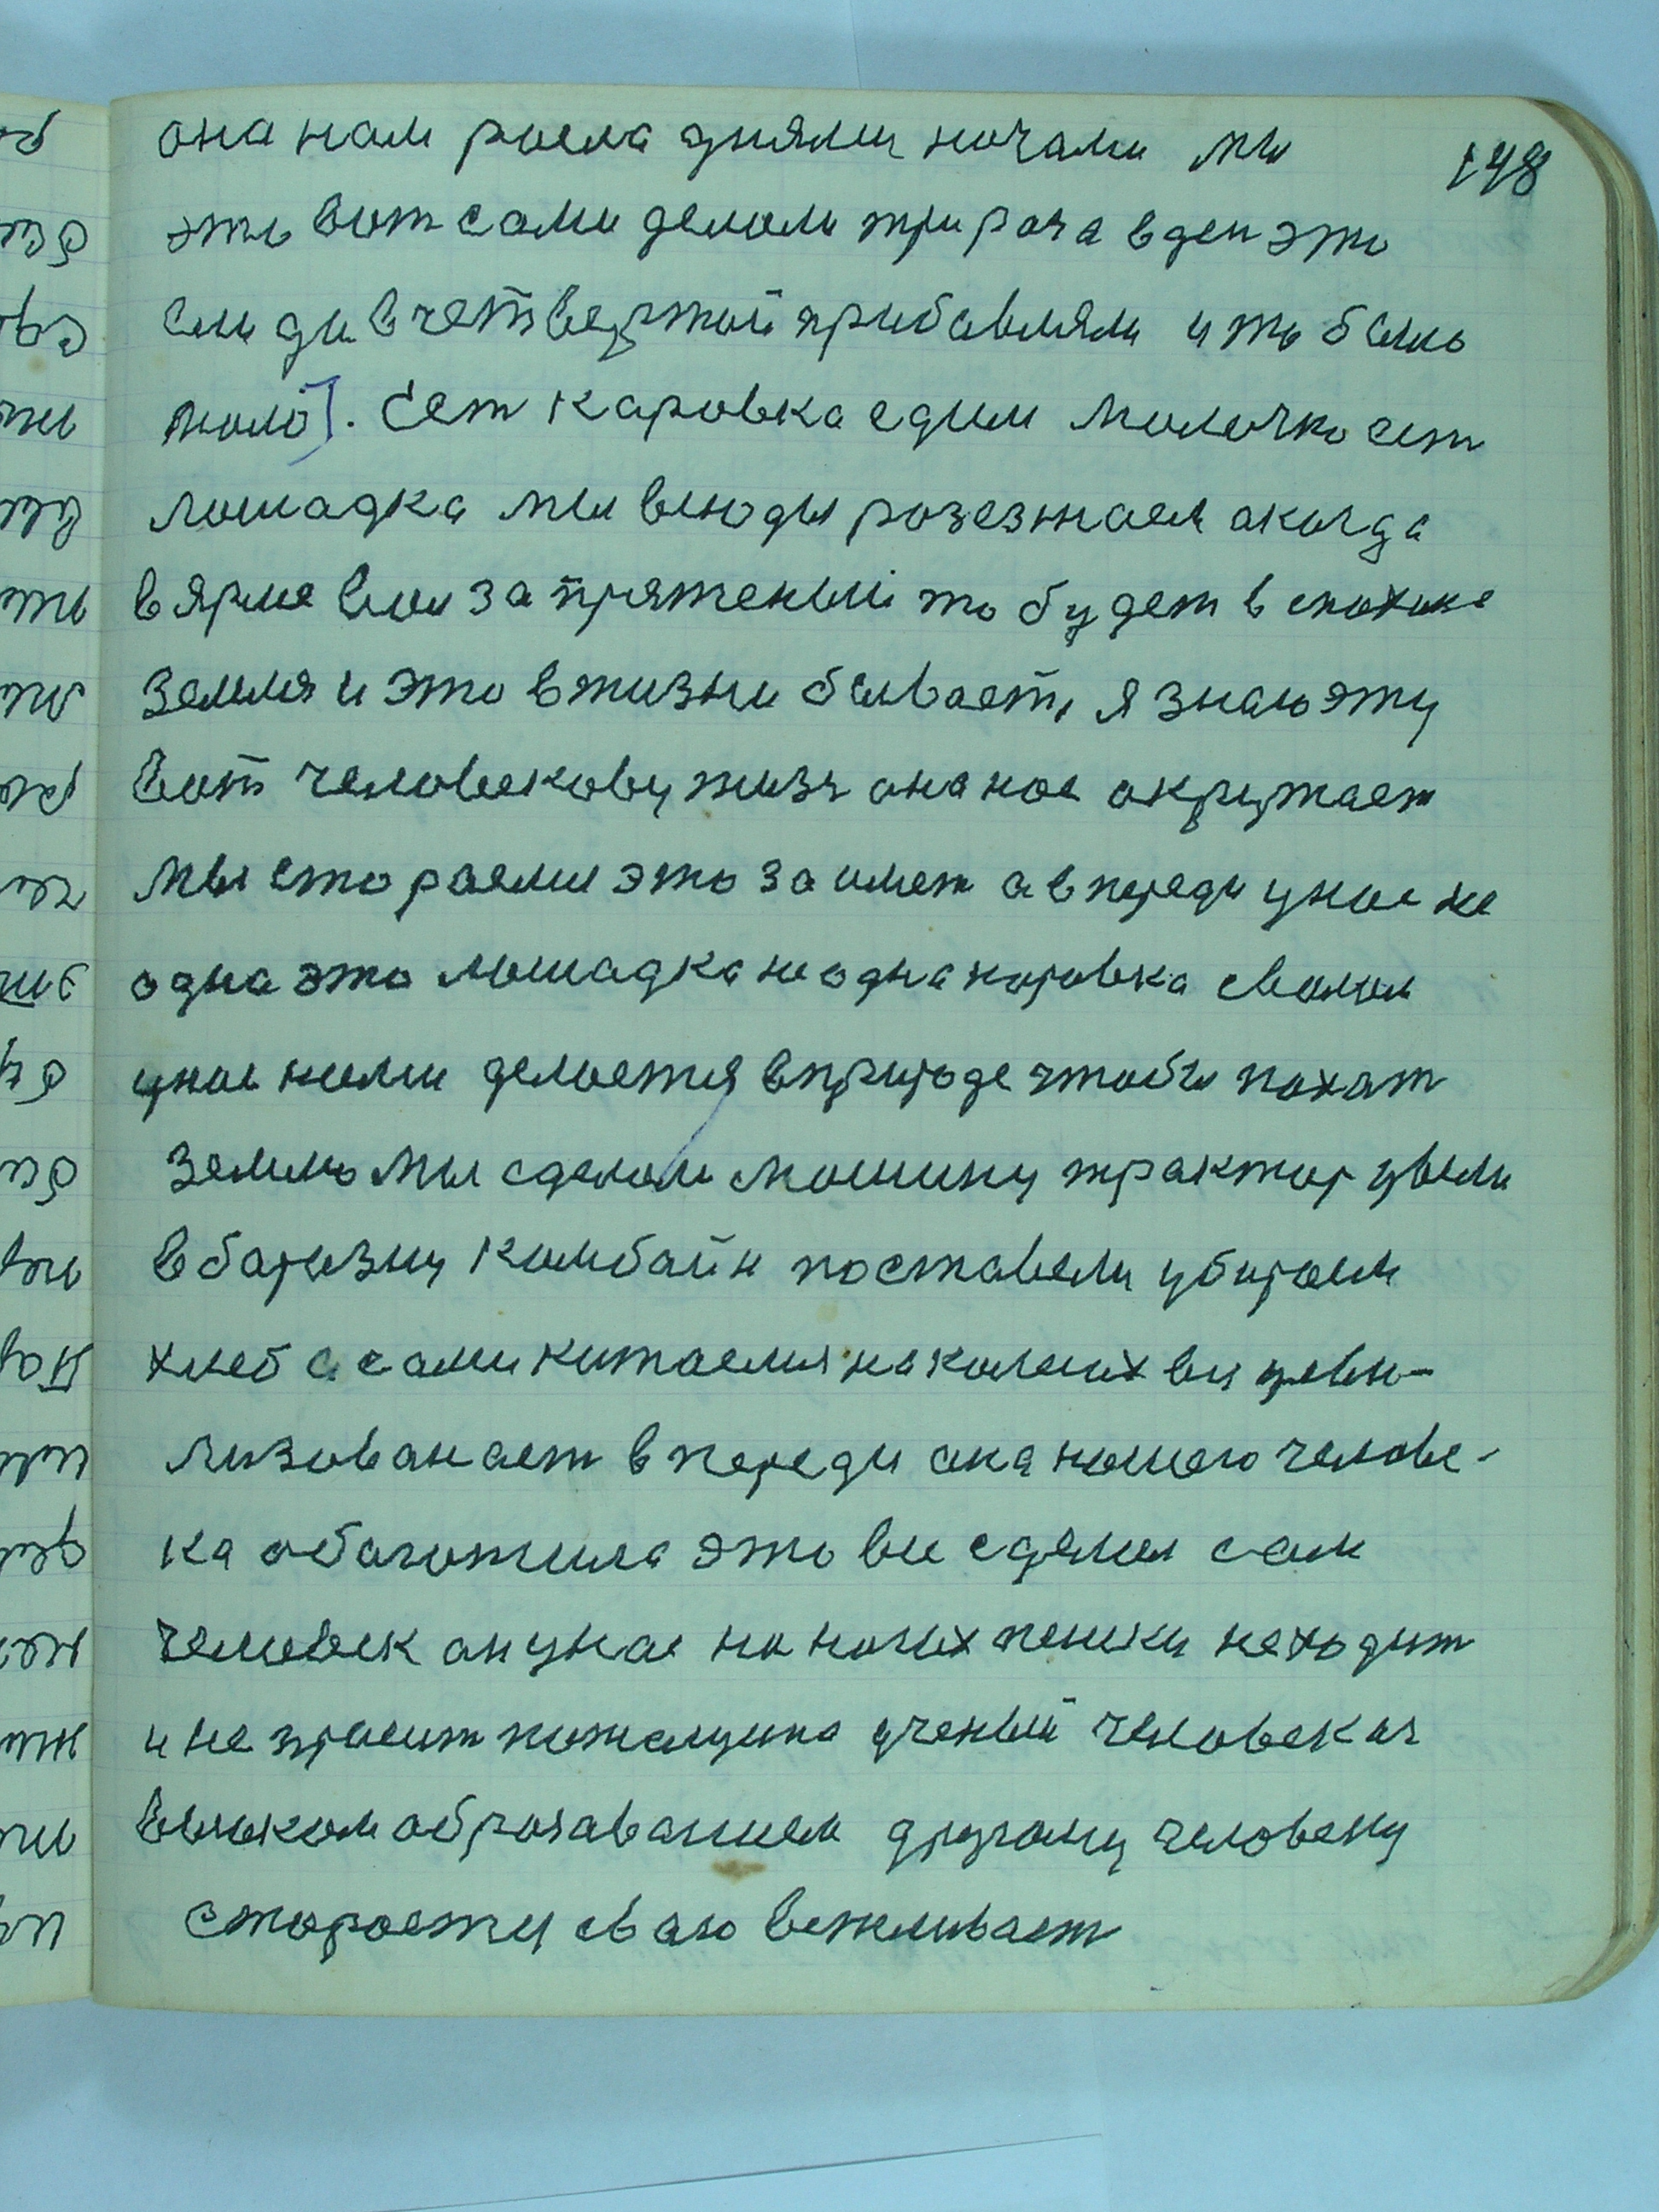 148
она нам росла днями ночами мы
эта вот сами делали три раза в ден это
еще да в четвертой прибавляли и то было
мало]. Ест каровка едим молочко ест
лошадка мы всюды розезжаем а когда
в ярме волы запряженыи то будет вспахане
земля и это в жизни бывает, я знаю эту
вот человекову жизн она нас окружает
мы стораемы это заимет а впереди у нас не
одна это лошадка не одна коровка с волом
у нас ними делается в природе чтобы похат
землю мы сделали мошину трактор увели
в барозну комбайн поставели убираем
хлеб а сами китаемся на колесих вся цеви-
лизована ест в переди она нашего челове-
ка обагатила это все сделал сам
человек он у нас на ногах пешки не ходит
и не просит пожалуста ученый человек из
высоком образаванием другому человеку
сторости сваю вежливаст